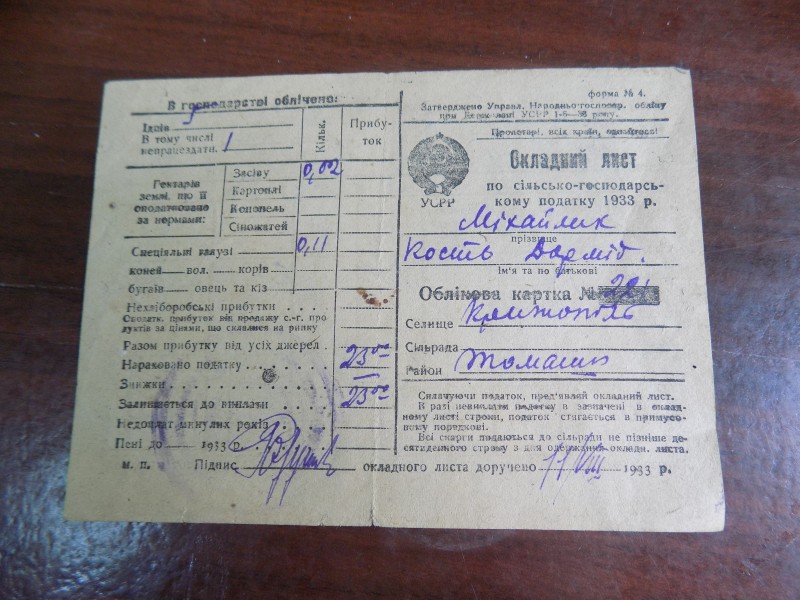 В господарстві обліче́но:
Їдців 5
В тому числі
непрацездатн. 1
Кільк.
Прибу-
ток
Гектарів
землі, що її
оподатковано
за нормами:
Засіву 0,02
Картоплі
Конопель
Сіножатей
Спеціяльні галузі 0,11
коней — вол. — корів
бугаїв — овець та кіз
Нехліборобські прибутки
Сподатк. прибуток від продажу с.-г. про
дуктів за цінами, що склалися на ринку
Разом прибутку від усіх джерел
Нараховано податку 23 00
Знижки —
Залишається до виплати 23 00
Недоплат минулих років
Пені до 1933 р.
м. п. Підпис
форма № 4.
Затверджено Управл. Народньо-господар. обліку
при Держплані УСРР 1-6—33 року.
Пролетарі, всіх країн, єднайтеся!
УСРР
Окладний лист
по сільсько-господарсь-
кому податку 1933 р.
Міхайлик
прізвище
Кость Дормід.
ім'я та по батькові
Облікова картка №
Селище Крижопіль
Сільрада
Район Томашп
Сплачуючи податок, пред'являй окладний лист.
В разі невиплати податку в зазначені в оклад-
ному листі строки, податок стягається в примусо-
вому порядкові.
Всі скарги подаються до сільради не пізніше де-
сятиденного строку з дня одержання окладн. листа.
окладного листа доручено 11 VIII 1933 р.